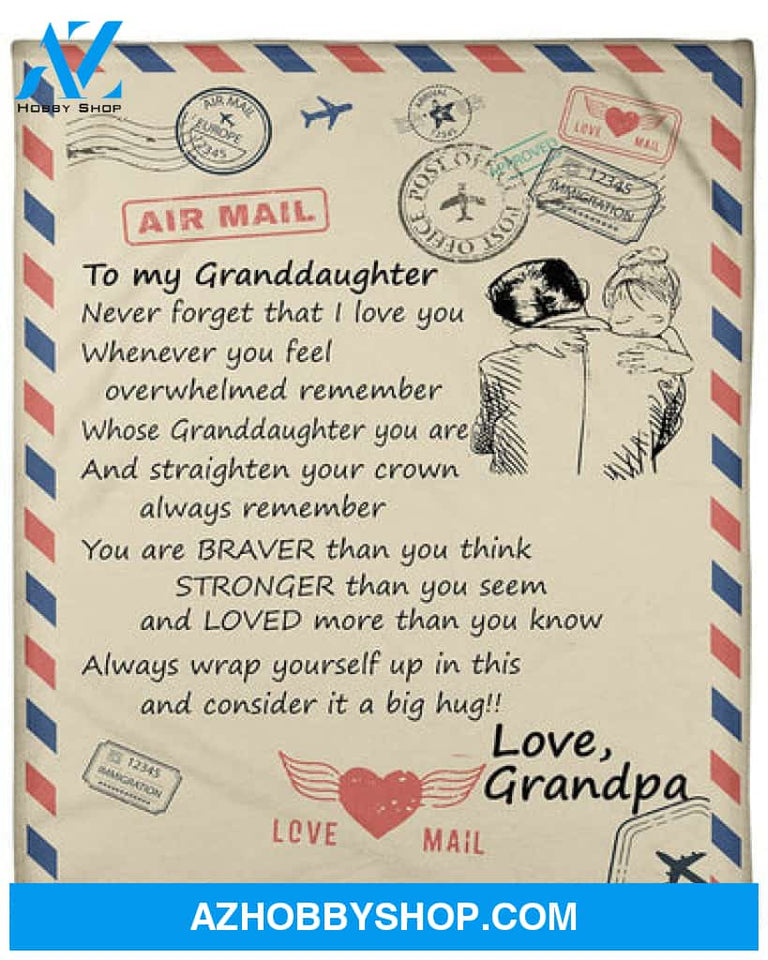 AZ
HOBBY SHOP
AIR MAIL
EUROPE
12345
ARRIVAL
12345
LOVE MAIL
APPROVED
POST OFFICE
POST OFFICE
12345
IMMIGRATION
AIR MAIL
To my Granddaughter
Never forget that I love you
Whenever you feel
overwhelmed remember
Whose Granddaughter you are
And straighten your crown
always remember
You are BRAVER than you think
STRONGER than you seem
and LOVED more than you know
Always wrap yourself up in this
and consider it a big hug!!
Love,
Grandpa
12345
IMMIGRATION
LOVE MAIL
AZHOBBYSHOP.COM